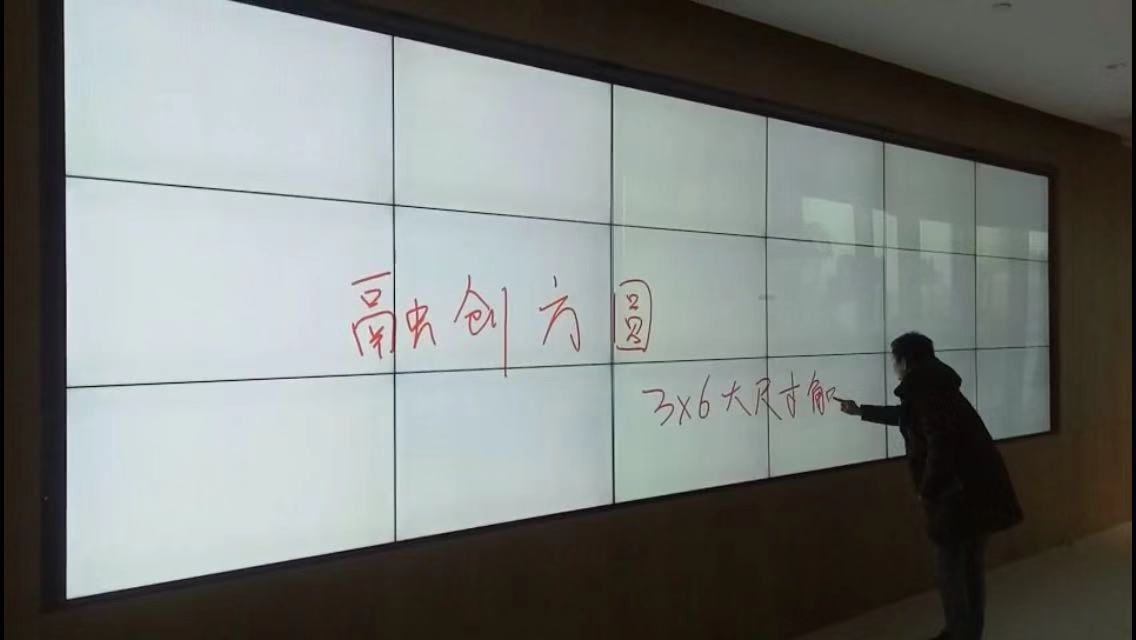 融创方圆
3×6大尺寸角